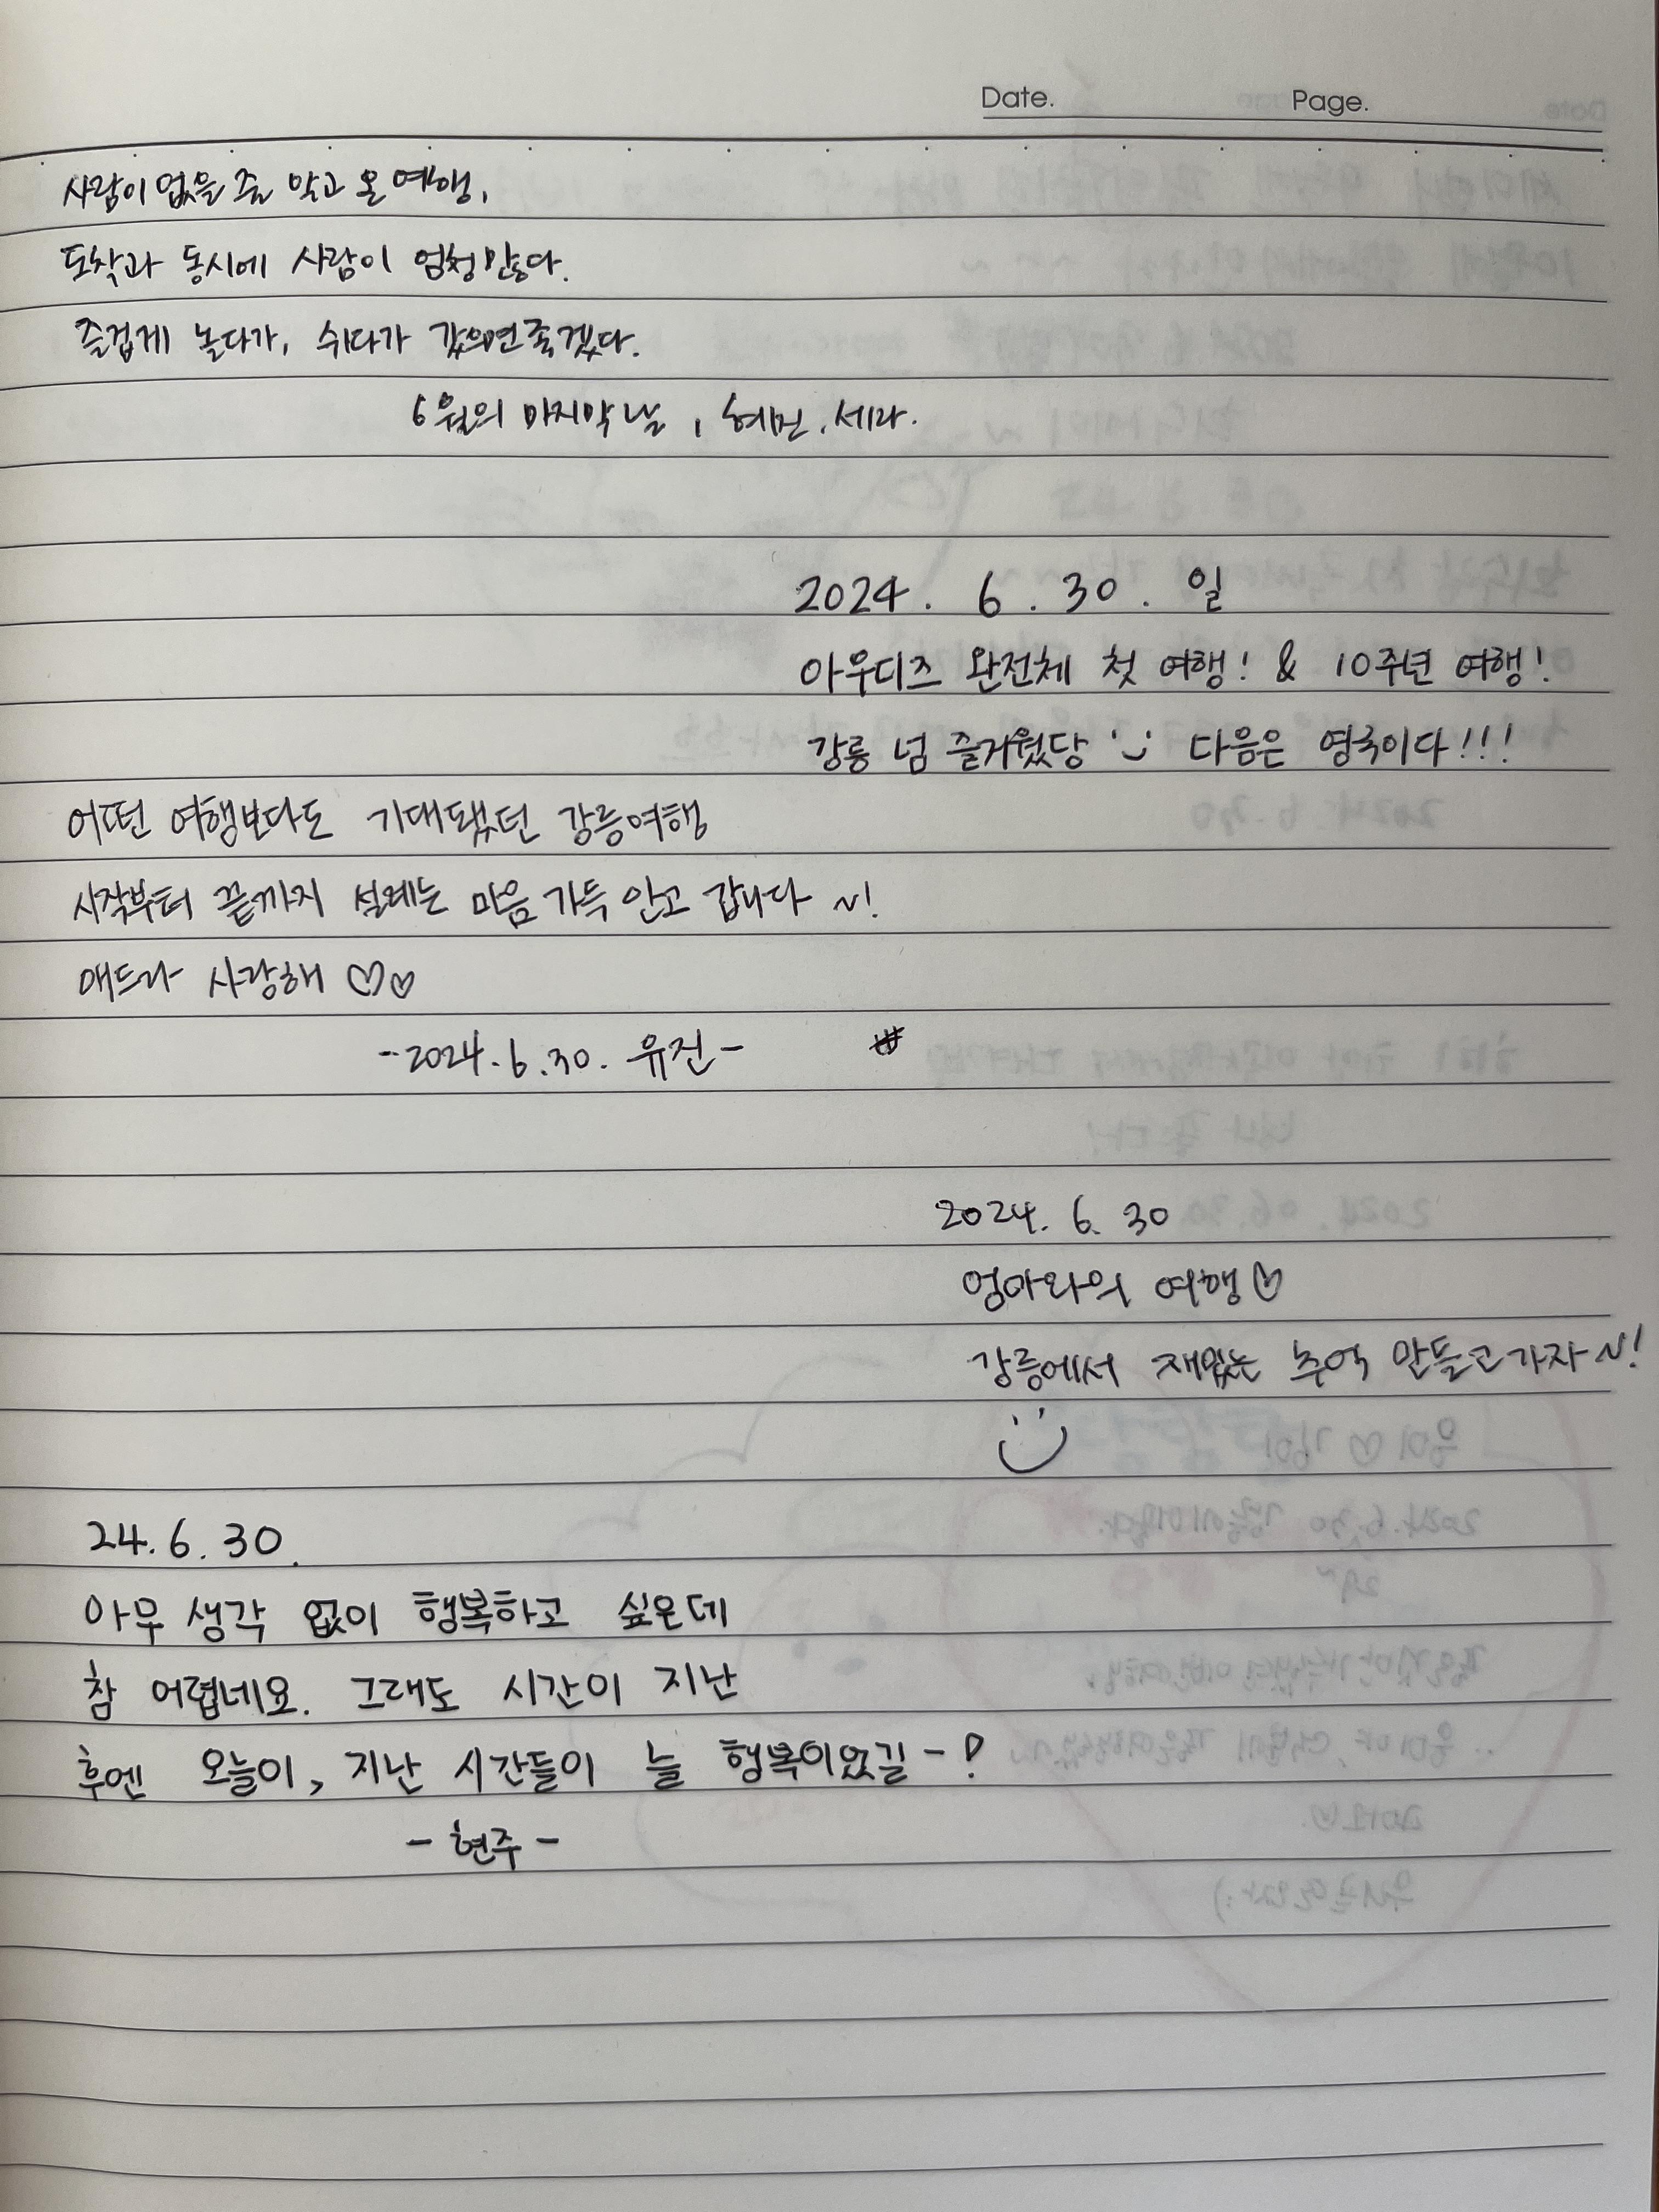 Date. Page.
사람이 없을 줄 알고 온 여행,
도착과 동시에 사람이 엄청많다.
즐겁게 놀다가, 쉬다가 갔으면좋겠다.
6월의 마지막 날, 혜민, 세라.
2024. 6. 30. 일
아우디즈 완전체 첫 여행! & 10주년 여행!
강릉 넘 즐거웠당 다음은 영국이다!!!
어떤 여행보다도 기대됐던 강릉여행
시작부터 끝까지 설레는 마음 가득 안고 갑니다~!
애드라 사랑해 ♡♡
-2024.6.30. 유진-
2024. 6. 30
엄마와의 여행♡
강릉에서 재밌는 추억 만들고가자~!
24. 6. 30.
아무 생각 없이 행복하고 싶은데
참 어렵네요. 그래도 시간이 지난
후엔 오늘이, 지난 시간들이 늘 행복이었길-!
- 현주 -